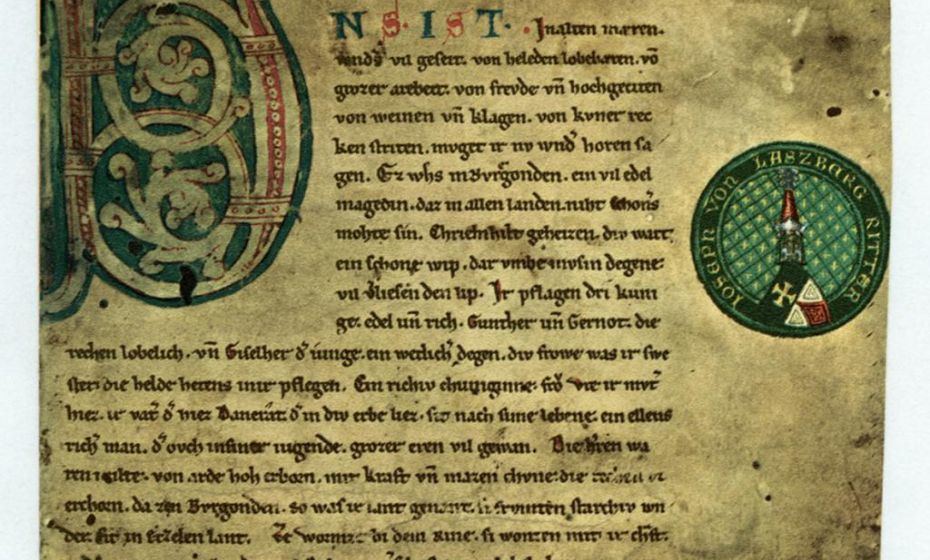 N S · I S T · Jn alten mæren.
wnd᾽s vil geseit. von heleden lobebæren. vō
grozer arebeit. von frevde vn̄ hochgeciten
von weinen vn̄ klagen. von kvner rec
ken striten. mvget ir nv wnd᾽ horen sa
gen. Ez whs in Bvrgonden. ein vil edel
magedin. daz in allen landen. niht schon᾽s
mohte sin. Chriemhilt geheizen. div wart
ein schone wip. dar vmbe mvsin degene
vil v᾽liesen den lip. Ir pflagen dri kuni
ge. edel vn̄ rich. Gunther vn̄ Gernot. die
rechen lobelich. vn̄ Giselher d᾽ iunge. ein wetlich᾽ degen. div frowe was ir swe
ster. die helde hetens inir pflegen. Ein richiv chuniginne. frō vte ir mvt᾽
hiez. ir vat᾽ d᾽ hiez Dancrat. d᾽ in div erbe liez. sit nach sime lebene. ein ellens
rich᾽ man. d᾽ ovch in siner iugende. grozer eren vil gewan. Die h᾽ren wa
ren milte. von arde hoh erborn. mit kraft vn̄ mazen chvne. die rechen vz
erchorn. da zen Bvrgonden. so was ir lant genant. si frvmten starchiv wn
der. sit in Etzelen lant. Ze wormze bi dem Rine. si wonten mit ir chraft.
IOSEPH VON LASZBURG RITTER